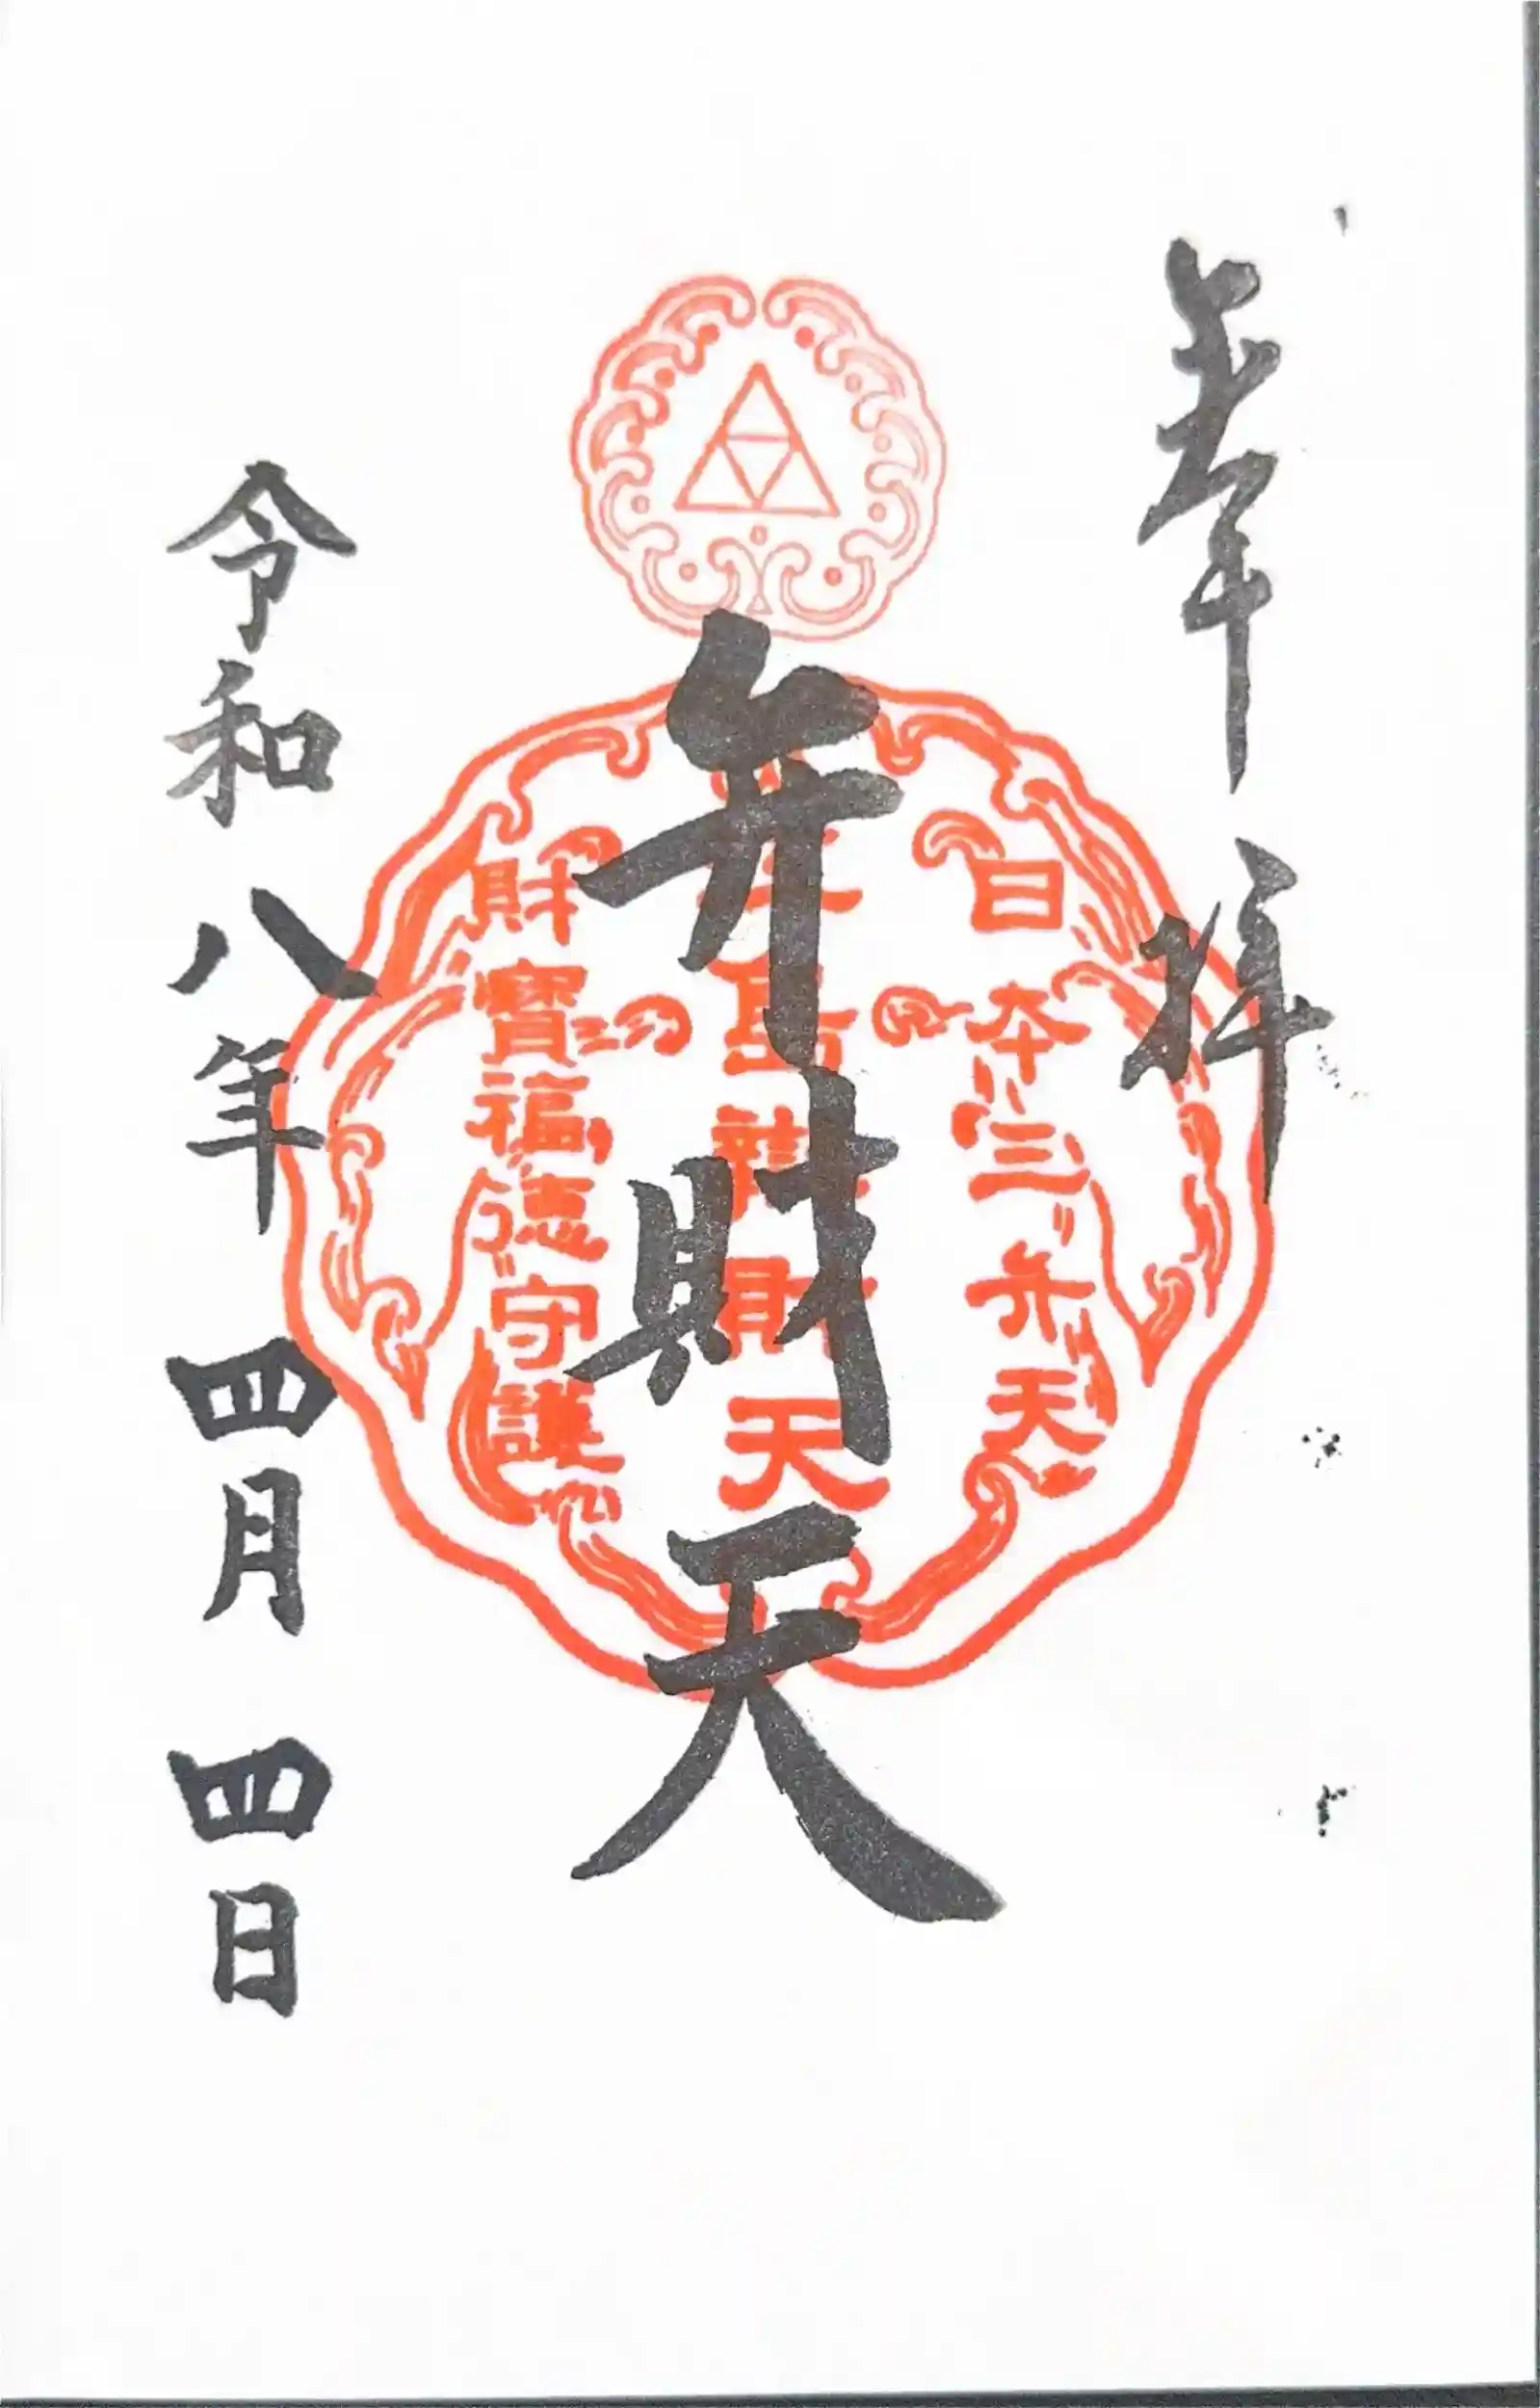 奉拝
日本三弁天
弁財天
島辨財天
財寶福徳守護
令和八年四月四日